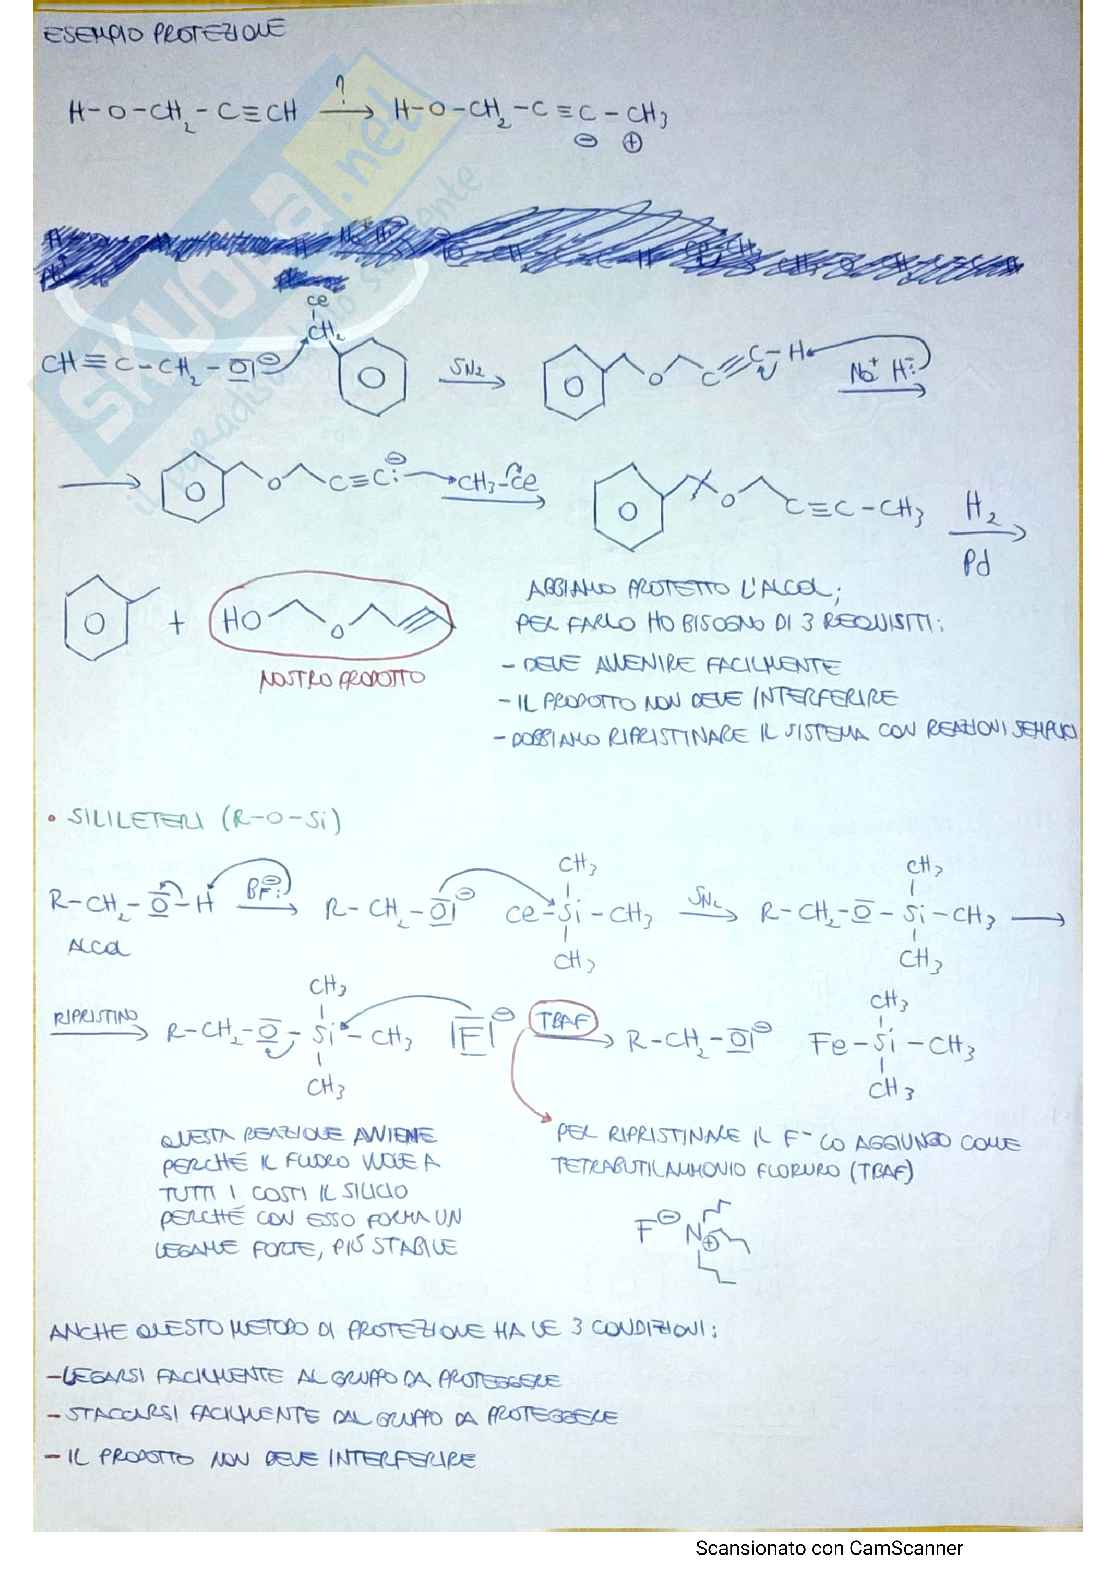 ESEMPIO PROTEZIONE
H-O-CH2-C≡CH ?→ H-O-CH2-C≡C-CH3
⊖ ⊕
Ce
CH2
CH≡C-CH2-O⊖ SN2 O C C-H Na+ H:-
O C≡C:⊖ CH3-Ce O C≡C-CH3 H2
Pd
+ HO O
NOSTRO PRODOTTO
ABBIAMO PROTETTO L'ALCOL;
PER FARLO HO BISOGNO DI 3 REQUISITI:
- DEVE AVVENIRE FACILMENTE
- IL PRODOTTO NON DEVE INTERFERIRE
- DOBBIAMO RIPRISTINARE IL SISTEMA CON REAZIONI SEMPLICI
• SILILETERI (R-O-Si)
CH3 CH3
R-CH2-O-H BF:⊖ R-CH2-O⊖ Ce-Si-CH3 SN2 R-CH2-O-Si-CH3
ALCOL CH3 CH3
CH3 CH3
RIPRISTINO R-CH2-O-Si-CH3 F⊖ TBAF R-CH2-O⊖ Fe-Si-CH3
CH3 CH3
QUESTA REAZIONE AVVIENE
PERCHÉ IL FLUORO VUOLE A
TUTTI I COSTI IL SILICIO
PERCHÉ CON ESSO FORMA UN
LEGAME FORTE, PIÚ STABILE
PER RIPRISTINARE IL F- LO AGGIUNGO COME
TETRABUTILAMMONIO FLORURO (TBAF)
F⊖ N⊕
ANCHE QUESTO METODO DI PROTEZIONE HA LE 3 CONDIZIONI:
- LEGARSI FACILMENTE AL GRUPPO DA PROTEGGERE
- STACCARSI FACILMENTE DAL GRUPPO DA PROTEGGERE
- IL PRODOTTO NON DEVE INTERFERIRE
SKUOLA.net
il paradiso dello studente
Scansionato con CamScanner